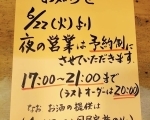 お知らせ
6/22(火)より
夜の営業は予約制に
させていただきます
17:00〜21:00まで
(ラストオーダーは20:00)
なお お酒の提供は